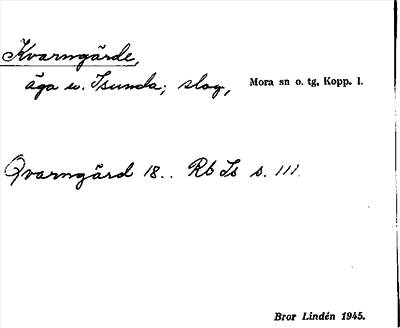 Kvarngärde,
äga u. Isunda; slog, Mora sn o. tg, Kopp. l.
Qvarngärd 18.. Rb Is s. 111.
Bror Lindén 1945.